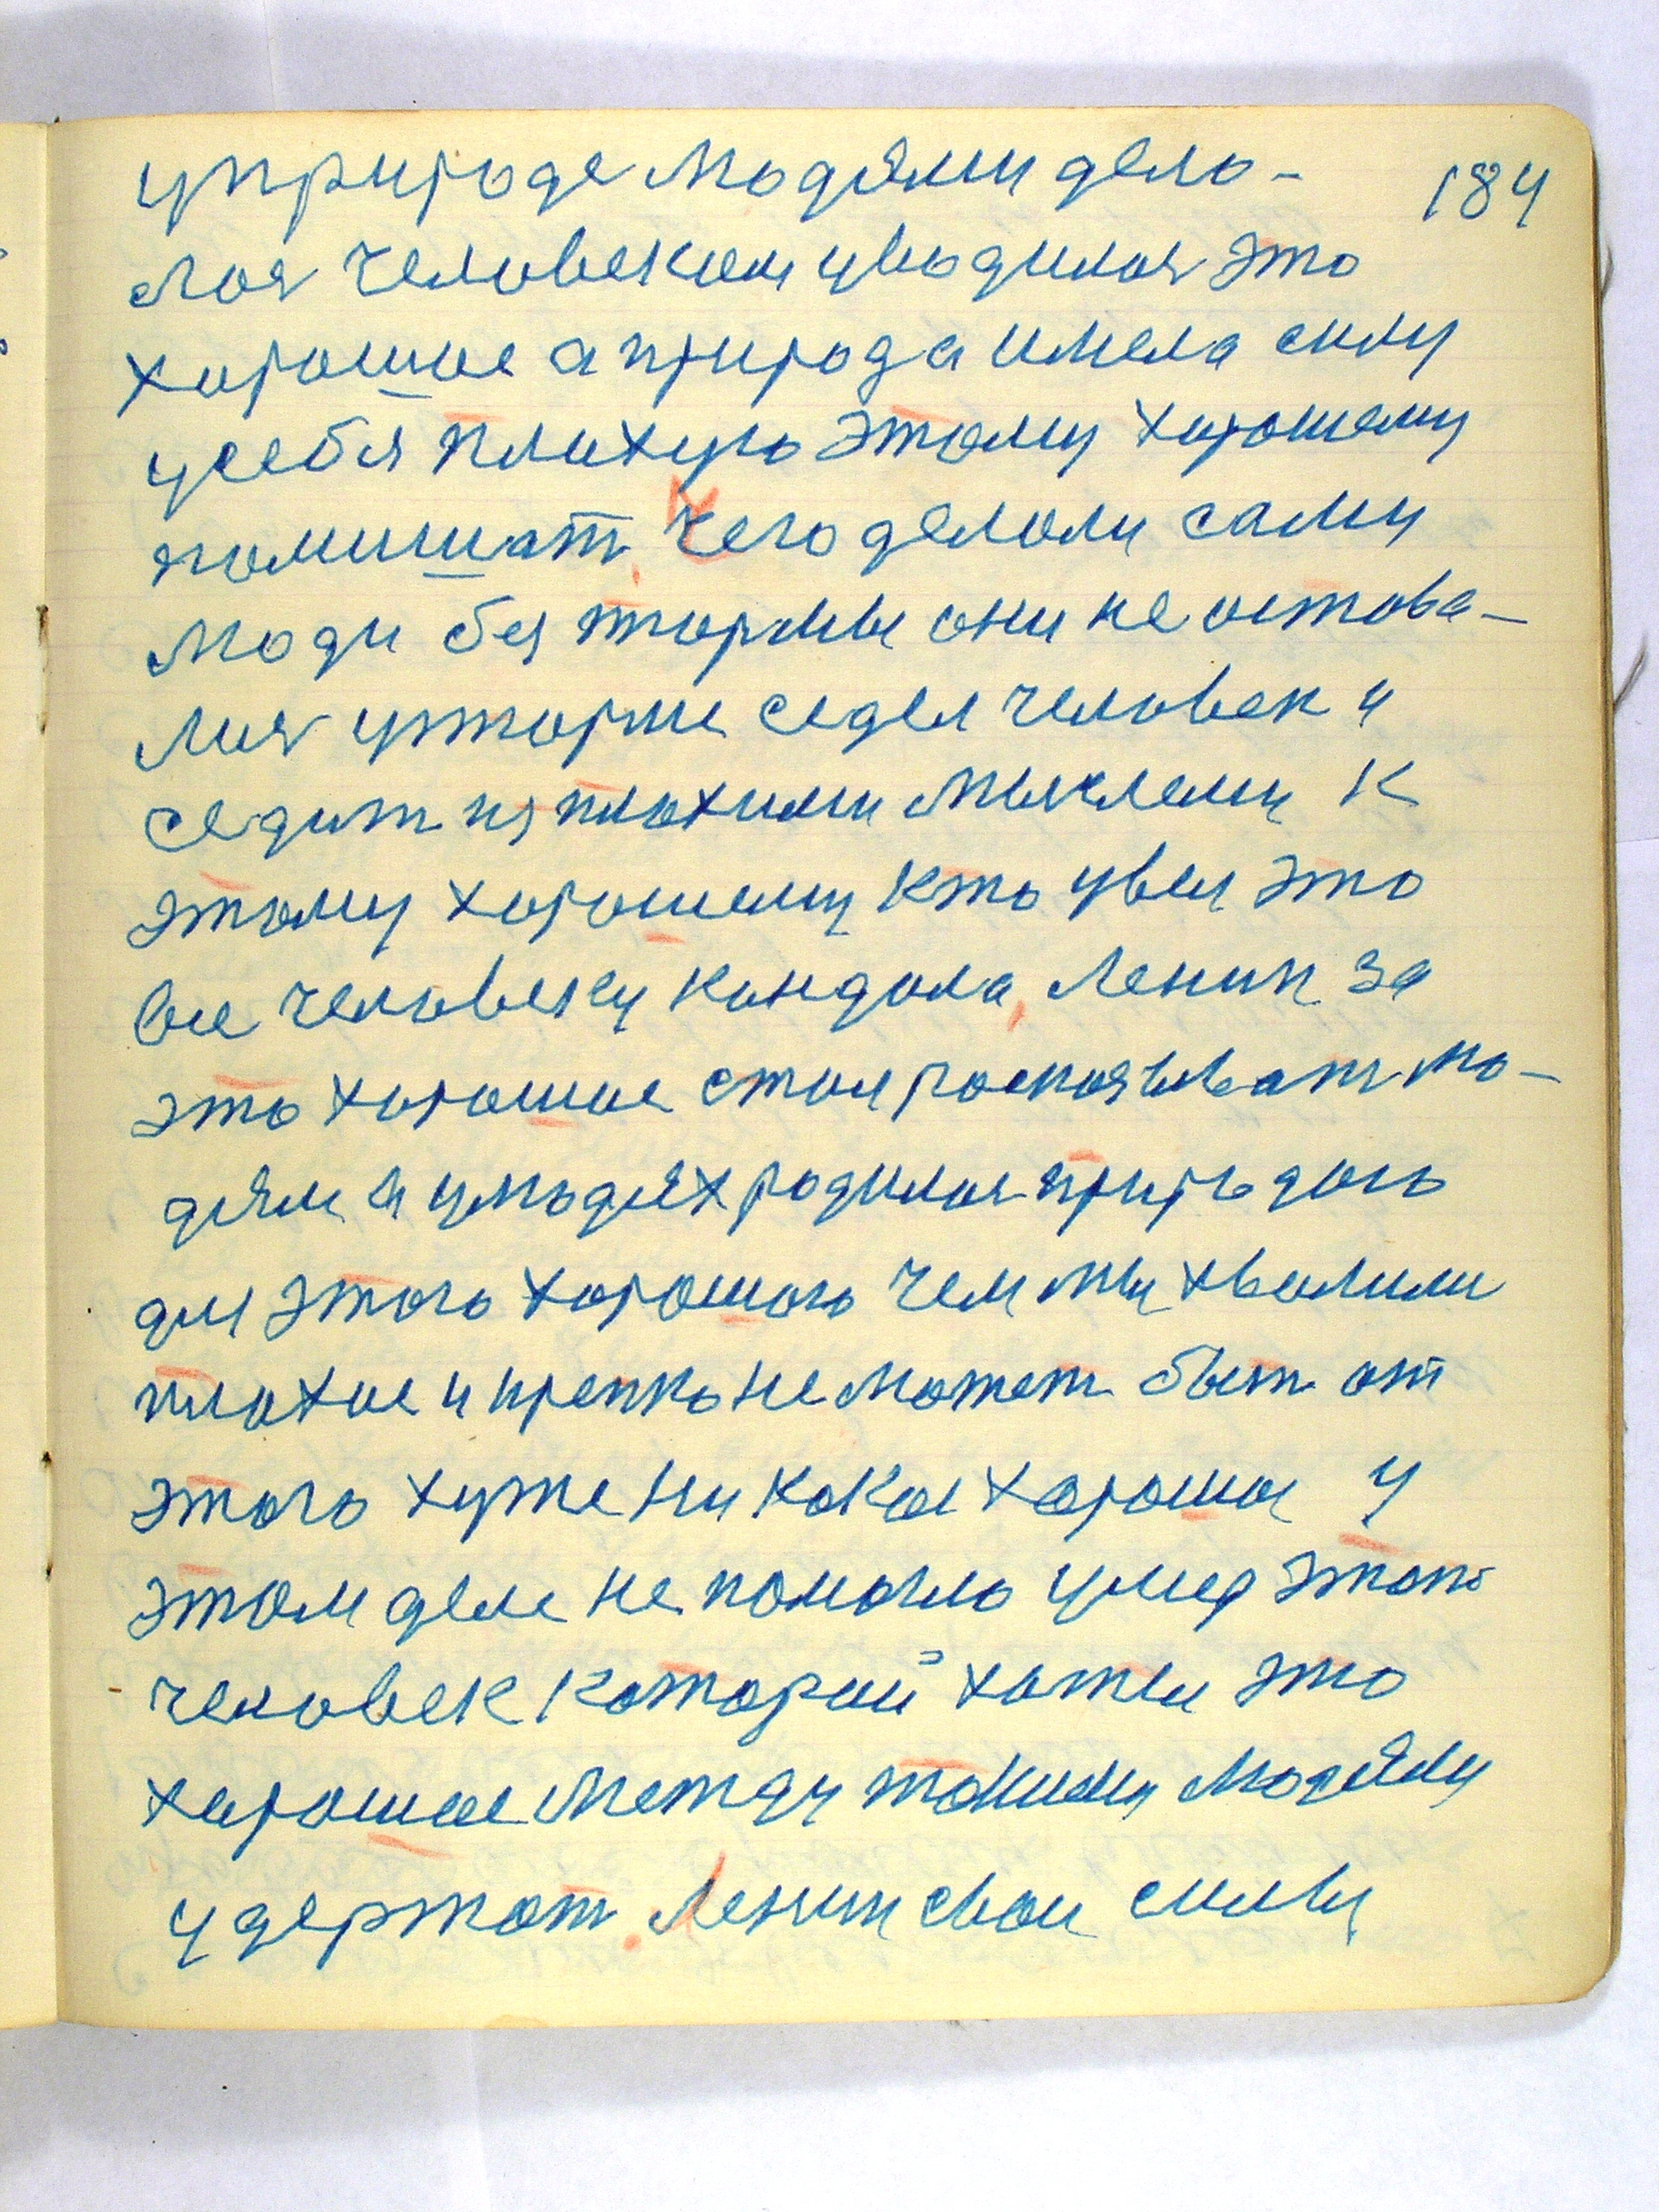 184
уприроде людями дела-
лся человеком уводился это
хорошое а природа имела силу
усебя плахую этому хорошему
помишат. Чего делоли сами
люди без тюрмы они не остова-
лис утюрме седел человек и
седит из плахими мыслеми к
этому хорошему кто увел это
все человеку кандала, Ленин за
это хорошое стал росказыват лю-
дям и улюдях родилос природою
для этого хорошого чем мы хвалили
плахое и крепко не может быт от
этого хуже ни какое хороше у
этом деле не помогло умер этот
человек каторый хотел это
харошое между такими людями
удержат. Ленин свои силы